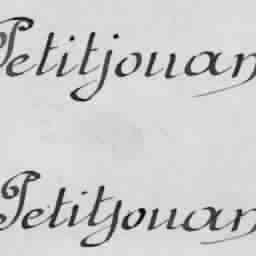 Petitjouan
Petitjouan